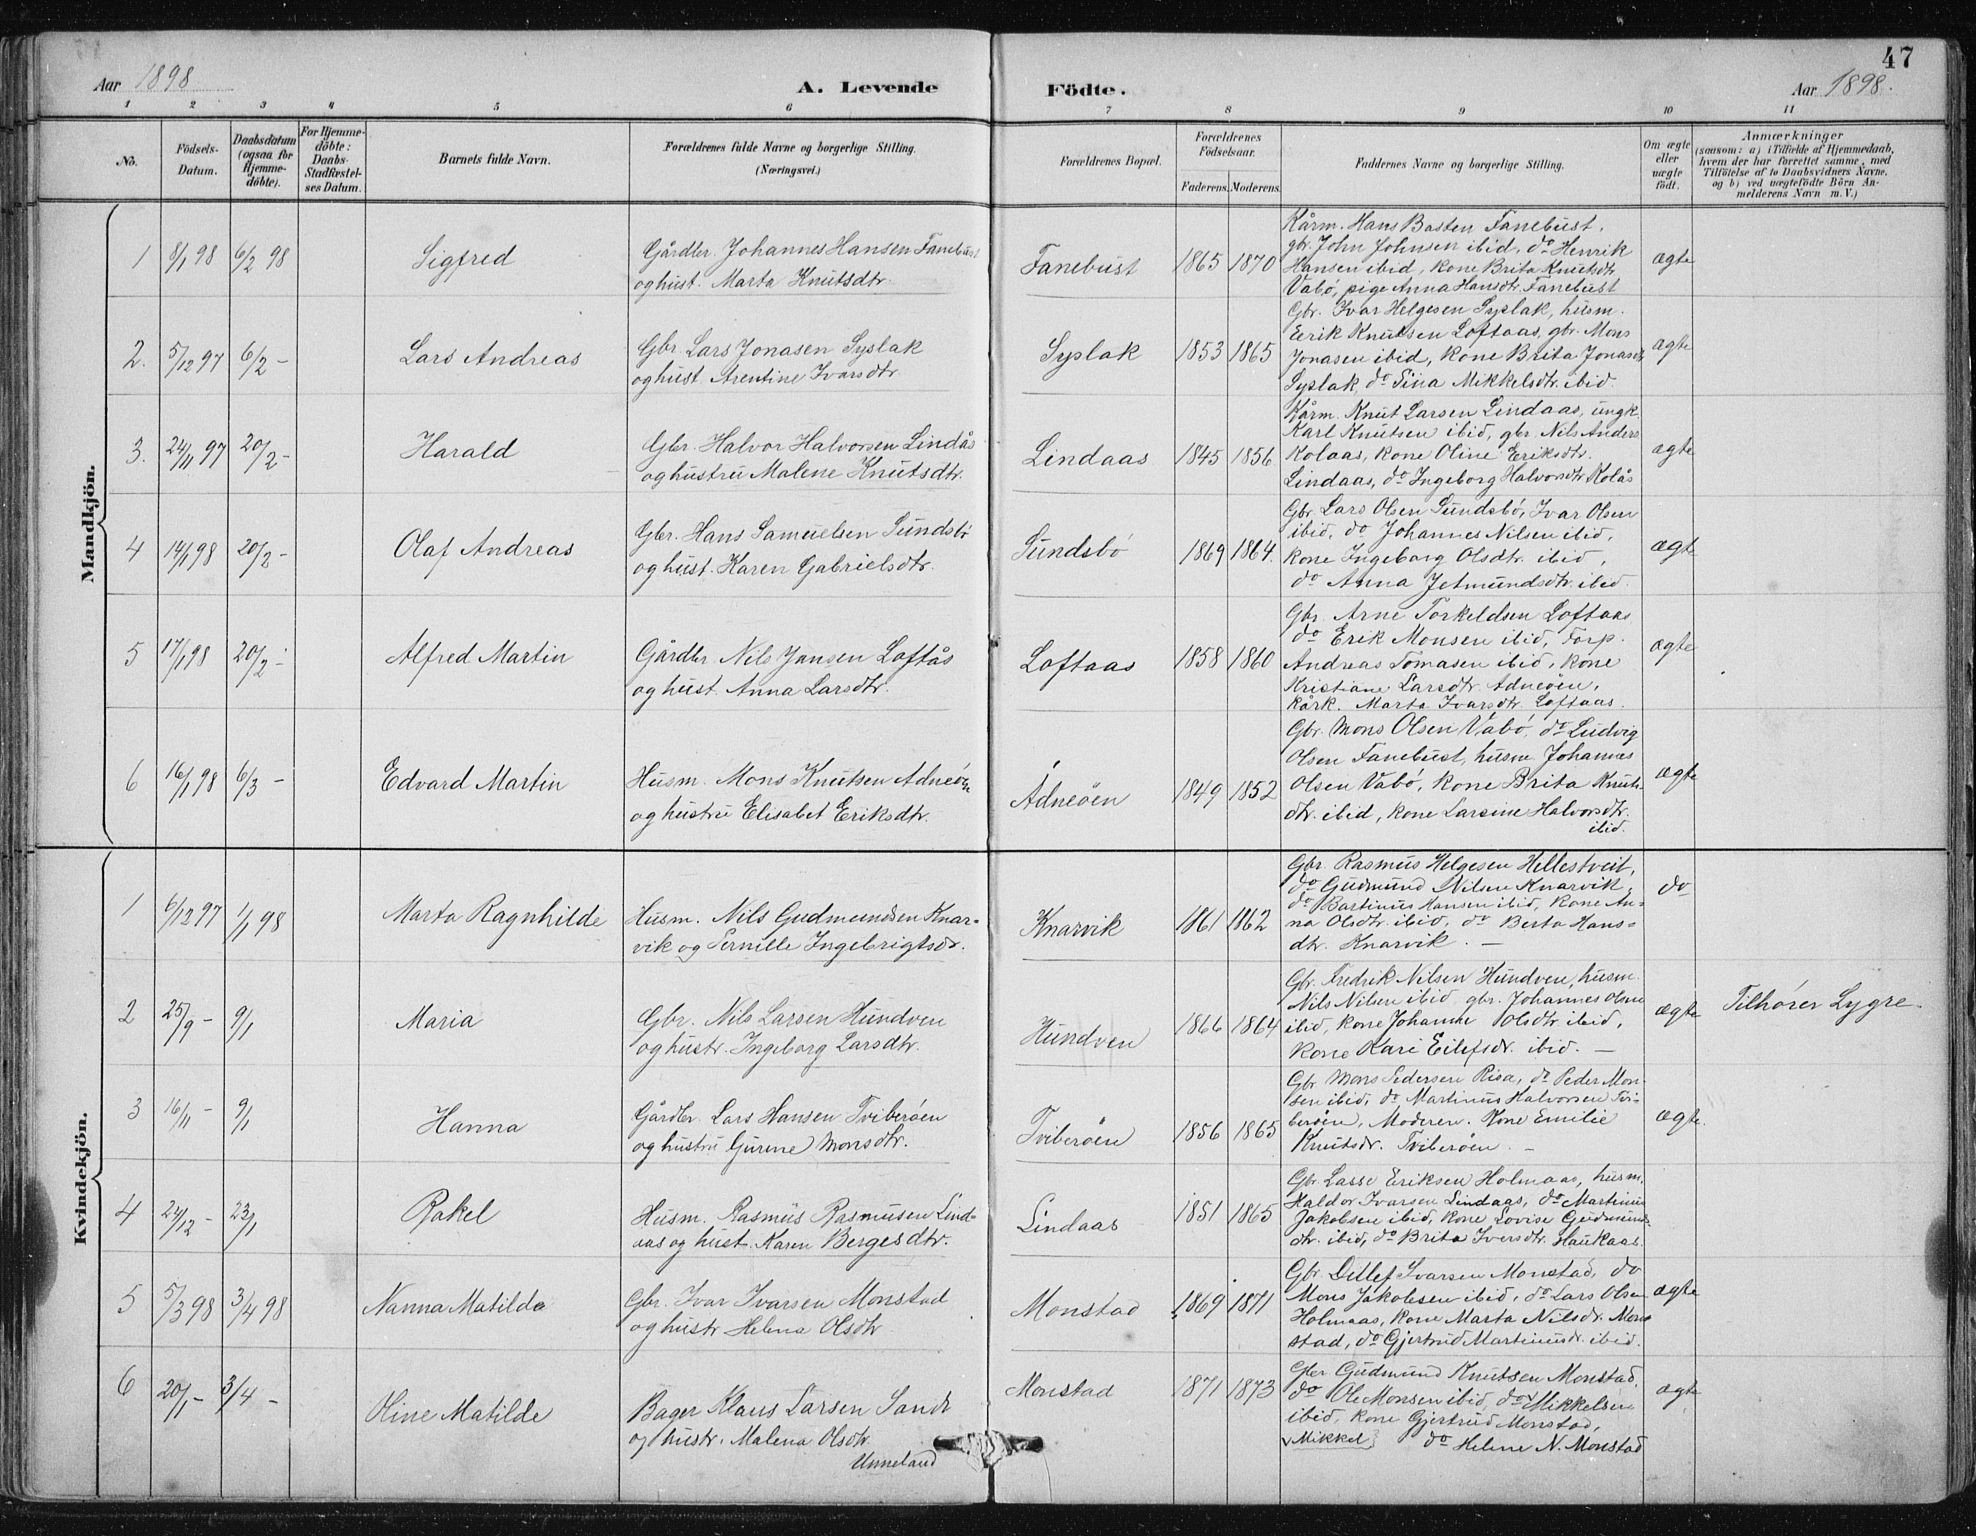 47
Aar 1898
A. Levende
Födte.
Aar 1898.
1 2 3 4 5 6 7 8 9 10 11
No.
Födsels-
Datum.
Daabsdatum
(ogsaa for
Hjemme-
döbte).
For Hjemme-
döbte:
Daabs-
Stadfæstel-
ses Datum.
Barnets fulde Navn.
Forældrenes fulde Navne og borgerlige Stilling.
(Næringsvei.)
Forældrenes Bopæl.
Forældrenes
Födselsaar.
Faderens. Moderens.
Faddernes Navne og borgerlige Stilling.
Om ægte
eller
uægte
födt.
Anmærkninger
(saasom: a) i Tilfælde af Hjemmedaab,
hvem der har forrettet samme, med
Tilföielse af to Daabsvidners Navne,
og b) ved uægtefödte Börn An-
melderens Navn m. V.)
Mandkjön.
1
8/1 98
6/2 98
Sigfred
Gårdbr. Johannes Hansen Fanebust
og hust. Marta Knutsdtr.
Fanebust
1865
1870
Kårm. Hans Basten Fanebust,
gbr. John Johnsen ibid, do Henrik
Hansen ibid, kone Brita Knutsdtr.
Vabö, pige Anna Hansdtr. Fanebust
ægte
2.
5/12 97
6/2 –
Lars Andreas
Gbr. Lars Jonasen Syslak
og hust. Arentine Ivarsdtr.
Syslak
1853
1865
Gbr. Ivar Helgesen Syslak, husm.
Eerik Knutsen Loftaas, gbr. Mons
Jonasen ibid, kone Brita Jonasdtr
Syslak, do Sina Mikkelsdtr. ibid.
ægte
3.
24/11 97
20/2 –
Harald
Gbr. Halvor Halvorsen Lindås
og hustru Malene Knutsdtr.
Lindaas
1845
1856
Kårm. Knut Larsen Lindaas, ungk.
Karl Knutsen ibid, gbr. Nils Anders.
Kolaas, kone Oline Eriksdtr.
Lindaas, do Ingeborg Halvorsdtr. Kolås
ægte
4
14/1 98
20/2 –
Olaf Andreas
Gbr. Hans Samuelsen Sundsbö
og hust. Karen Gabrielsdtr.
Sundsbö
1869
1864.
Gbr. Lars Olsen Sundsbö, Ivar Olsen
ibid, do Johannes Nilsen ibid,
kone Ingeborg Olsdtr. ibid,
do Anna Jetmundsdtr. ibid.
ægte
5
17/1 98
20/2 –
Alfred Martin
Gårdbr. Nils Jansen Loftås
og hust. Anna Larsdtr.
Loftaas
1858
1860
Gbr. Arne Torkeldsen Loftaas
do Erik Monsen ibid, Forp.
Andreas Tomasen ibid, kone
Kristiane Larsdtr. Adneöen,
kårk. Marta Ivarsdtr. Loftaas.
ægte
6
16/1 98
6/3 –
Edvard Martin
Husm. Mons Knutsen Adneöen
og hustru Elisabet Eriksdtr.
Adneöen
1849
1852
Gbr. Mons Olsen Vabö, do Ludvig
Olsen Fanebust, husm Johannes
Olsen Vabö, kone Brita Knuts-
dtr. ibid, kone Larsine Halvorsdtr.
ibid.
ægte
Kvindekjön.
1
6/12 97
1/1 98
Marta Ragnhilde
Husm. Nils Gudmundsen Knar-
vik og Pernille Ingebrigtsdr.
Knarvik
1861
1862
Gbr. Rasmus Helgesen Hellestveit,
do Gudmund Nilsen Knarvik,
do Bartinius Hansen ibid, kone An-
na Olsdtr. ibid, do Berta Hans-
dtr. Knarvik. –
do
2
25/9 –
9/1
Maria
Gbr. Nils Larsen Hundven
og hustr. Ingeborg Larsdtr.
Hundven
1866
1864
Gbr. Fredrik Nilsen Hundven, husm.
Nils Nilsen ibid, gbr. Johannes Olsen
ibid, kone Johanne Olsdtr ibid,
kone Kari Eilefsdr. ibid. –
ægte
Tilhörer Lygre
3
16/11 –
9/1
Hanna
Gårdbr. Lars Hansen Tviberöen
og hustru Gurine Monsdtr.
Tviberöen
1856
1865
Gbr Mons Pedersen Risa, do Peder Mon-
sen ibid, do Martinus Halvorsen Tvi-
beröen, Moderen. Kone Emilie
Knutsdr. Tviberöen. –
ægte.
4
24/12 –
23/1
Rakel
Husm. Rasmus Rasmusen Lind-
aas og hust. Karen Bergesdtr.
Lindaas
1851
1865
Gbr Lasse Eriksen Holmaas, husm.
Haldor Ivarsen Lindaas, do Martinus
Jakobsen ibid, kone Lovise Gudmunds-
dtr. ibid, do Brita Iversdtr. Haukaas.
5
5/3 98
3/4 98
Nanna Matilde
Gbr. Ivar Ivarsen Monstad
og hustr Helena Olsdtr
Monstad
1869
1871
Gbr. Ditlef Ivarsen Monstad, do
Mons Jakobsen ibid, do Lars Olsen
Holmaas, kone Marta Nilsdr. Mon-
stad, do Gjertrud Martinusdr. ibid.
ægte
6
20/1 –
3/4 –
Oline Matilde
Bager Klaus Larsen Sandt
og hustr. Malena Olsdtr.
Unneland
Monstad
1871
1873
Gbr Gudmund Knutsen Monstad,
do Ole Monsen ibid, do Mikkelsen
ibid, kone Gjertrud Monstad,
(Mikkel) do Helene N. Monstad
ægte